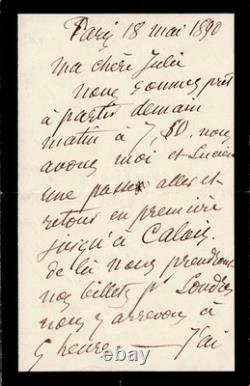 Paris 18 mai 1890
ma chère Julie
nous sommes prêt
à partir demain
matin à 7,50. nous
avons moi et Lucien
une passe aller et
retour en première
jusqu'à Calais.
de là nous prendrons
nos billets pr Londres
nous y arrivons à
5 heures — J'ai
© thumbimg.com